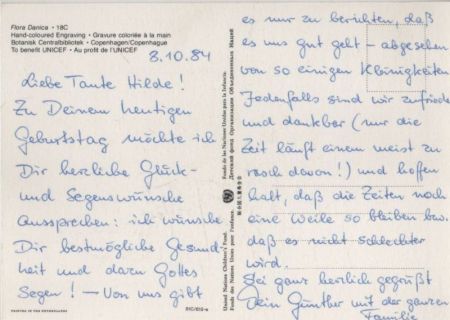 Flora Danica • 18C
Hand-coloured Engraving • Gravure coloriée à la main
Botanisk Centralbibliotek • Copenhagen/Copenhague
To benefit UNICEF • Au profit de l'UNICEF
8.10.84
Liebe Tante Hilde!
Zu Deinem heutigen
Geburtstag möchte ich
Dir herzliche Glück-
und Segenswünsche
aussprechen: ich wünsche
Dir bestmögliche Gesund-
heit und dazu Gottes
Segen! — Von uns gibt
es nur zu berichten, daß
es uns gut geht — abgesehen
von so einigen Kleinigkeiten
Jedenfalls sind wir zufrieden
und dankbar (nur die
Zeit läuft einem meist zu
rasch davon!) und hoffen
halt, daß die Zeiten noch
eine Weile so bleiben bzw.
daß es nicht schlechter
wird.
Sei ganz herzlich gegrüßt
Dein Günther mit der ganzen
Familie
United Nations Children's Fund.
Fonds des Nations Unies pour l'enfance.
Fondo de las Naciones Unidas para la Infancia.
Детский фонд Организации Объединенных Наций
联合国儿童基金会
PRINTED IN THE NETHERLANDS